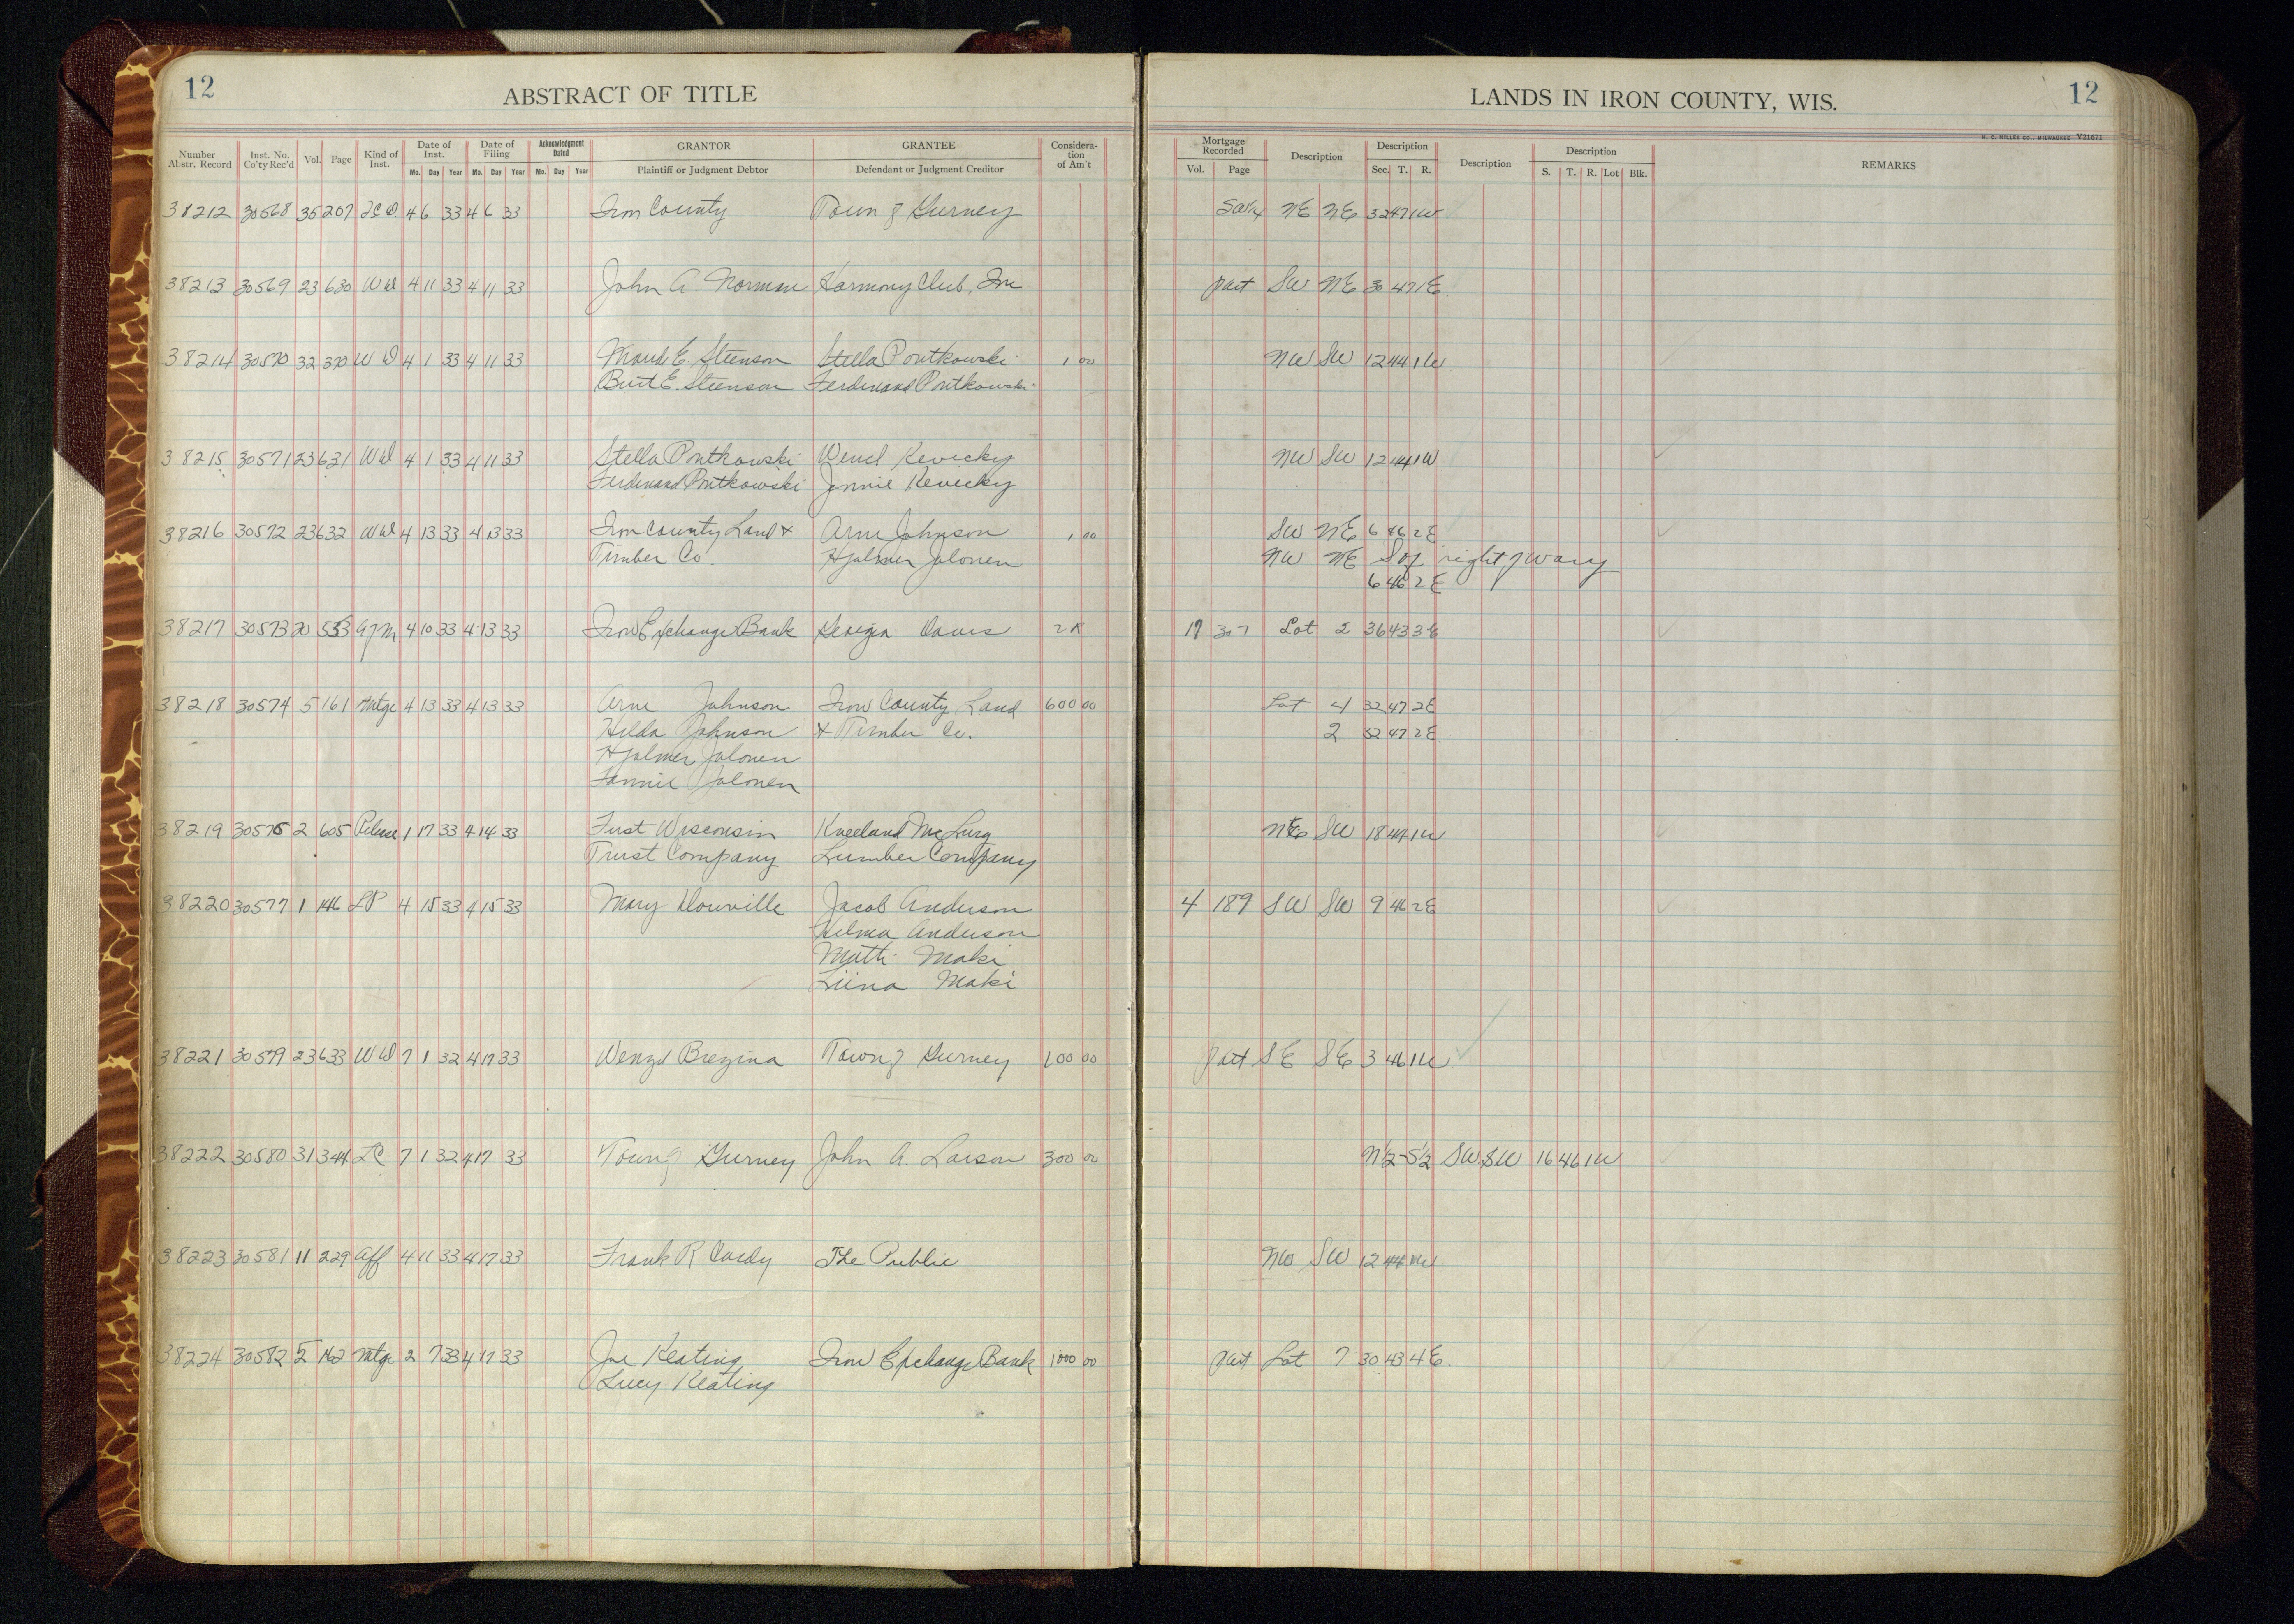 12
ABSTRACT OF TITLE
LANDS IN IRON COUNTY, WIS.
12
H. C. MILLER CO., MILWAUKEE V21671
Number Abstr. Record Inst. No. Co'ty Rec'd Vol. Page Kind of Inst. Date of Inst. Mo. Day Year Date of Filing Mo. Day Year Acknowledgment Dated Mo. Day Year GRANTOR Plaintiff or Judgment Debtor GRANTEE Defendant or Judgment Creditor Consideration of Am't
Mortgage Recorded Vol. Page Description Description Sec. T. R. Description Description S. T. R. Lot Blk. REMARKS
38212 30568 35 207 4 6 33 4 6 33 Iron County Town of Gurney SW1/4 NE NE 32 47 1W
38213 30569 23 630 WD 4 11 33 4 11 33 John A. Norman Harmony Club, Inc part SW NE 30 47 1E
38214 30570 32 370 WD 4 1 33 4 11 33 Maude E. Steenson Stella Pontkowski 1 00 NW SW 12 44 1W
Burt E. Steenson Ferdinand Pontkowski
38215 30571 23 631 WD 4 1 33 4 11 33 Stella Pontkowski Wencl Kevicky NW SW 12 44 1W
Ferdinand Pontkowski Jennie Kevicky
38216 30572 23 632 WD 4 13 33 4 13 33 Iron County Land & Arne Johnson 1 00 SW NE 6 46 2E
Timber Co. Hjalmer Jalonen NW NE S of right of way
6 46 2E
38217 30573 20 553 4 10 33 4 13 33 Iron Exchange Bank Georgia Davis 17 307 Lot 2 36 43 3E
38218 30574 5 161 Mtge 4 13 33 4 13 33 Arne Johnson Iron County Land 600 00 Lot 4 32 47 2E
Hilda Johnson & Timber Co. 2 32 47 2E
Hjalmer Jalonen
Fannie Jalonen
38219 30575 2 605 Release 1 17 33 4 14 33 First Wisconsin Kneeland McLurg NE SW 18 44 1W
Trust Company Lumber Company
38220 30577 1 146 LP 4 15 33 4 15 33 Mary Douville Jacob Anderson 4 189 SW SW 9 46 2E
Hilma Anderson
Matti Maki
Liina Maki
38221 30579 23 633 WD 7 1 32 4 17 33 Wenzel Brezina Town of Gurney 100 00 part SE SE 3 46 1W
38222 30580 31 344 LC 7 1 32 4 17 33 Town of Gurney John A. Larson 300 00 N1/2-S1/2 SW SW 16 46 1W
38223 30581 11 229 Aff 4 11 33 4 17 33 Frank R Cardy The Public NW SW 12 44 1W
38224 30582 5 162 Mtge 2 7 33 4 17 33 Joe Keating Iron Exchange Bank 1000 00 part Lot 7 30 43 4E.
Lucy Keating